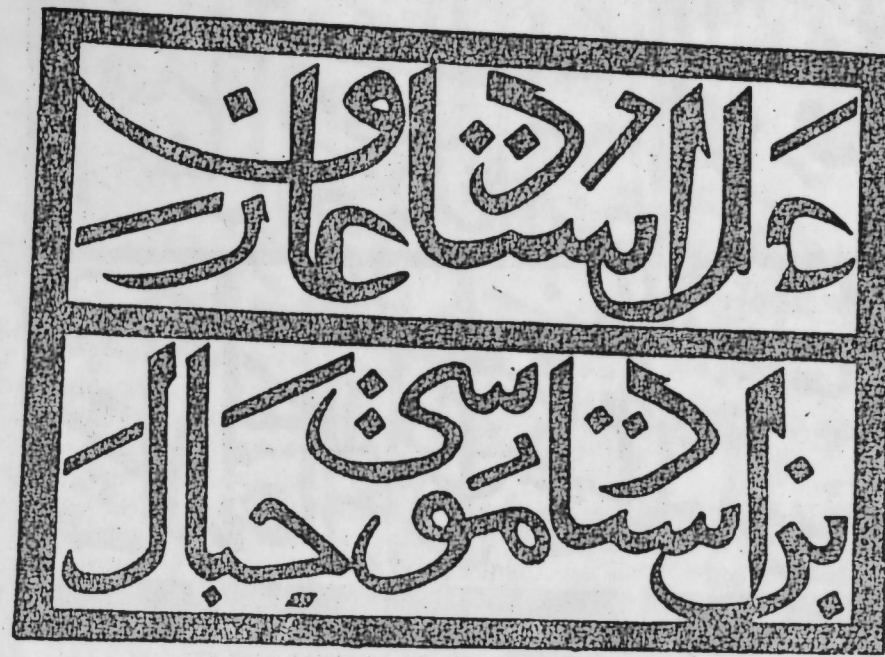 استاد عارف
بن استاد موسی جبال